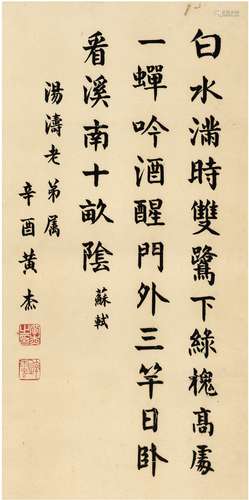 白水滿時雙鷺下綠槐高處
一蟬吟酒醒門外三竿日卧
看溪南十畝陰 蘇軾
湯濤老弟属
辛酉黃杰